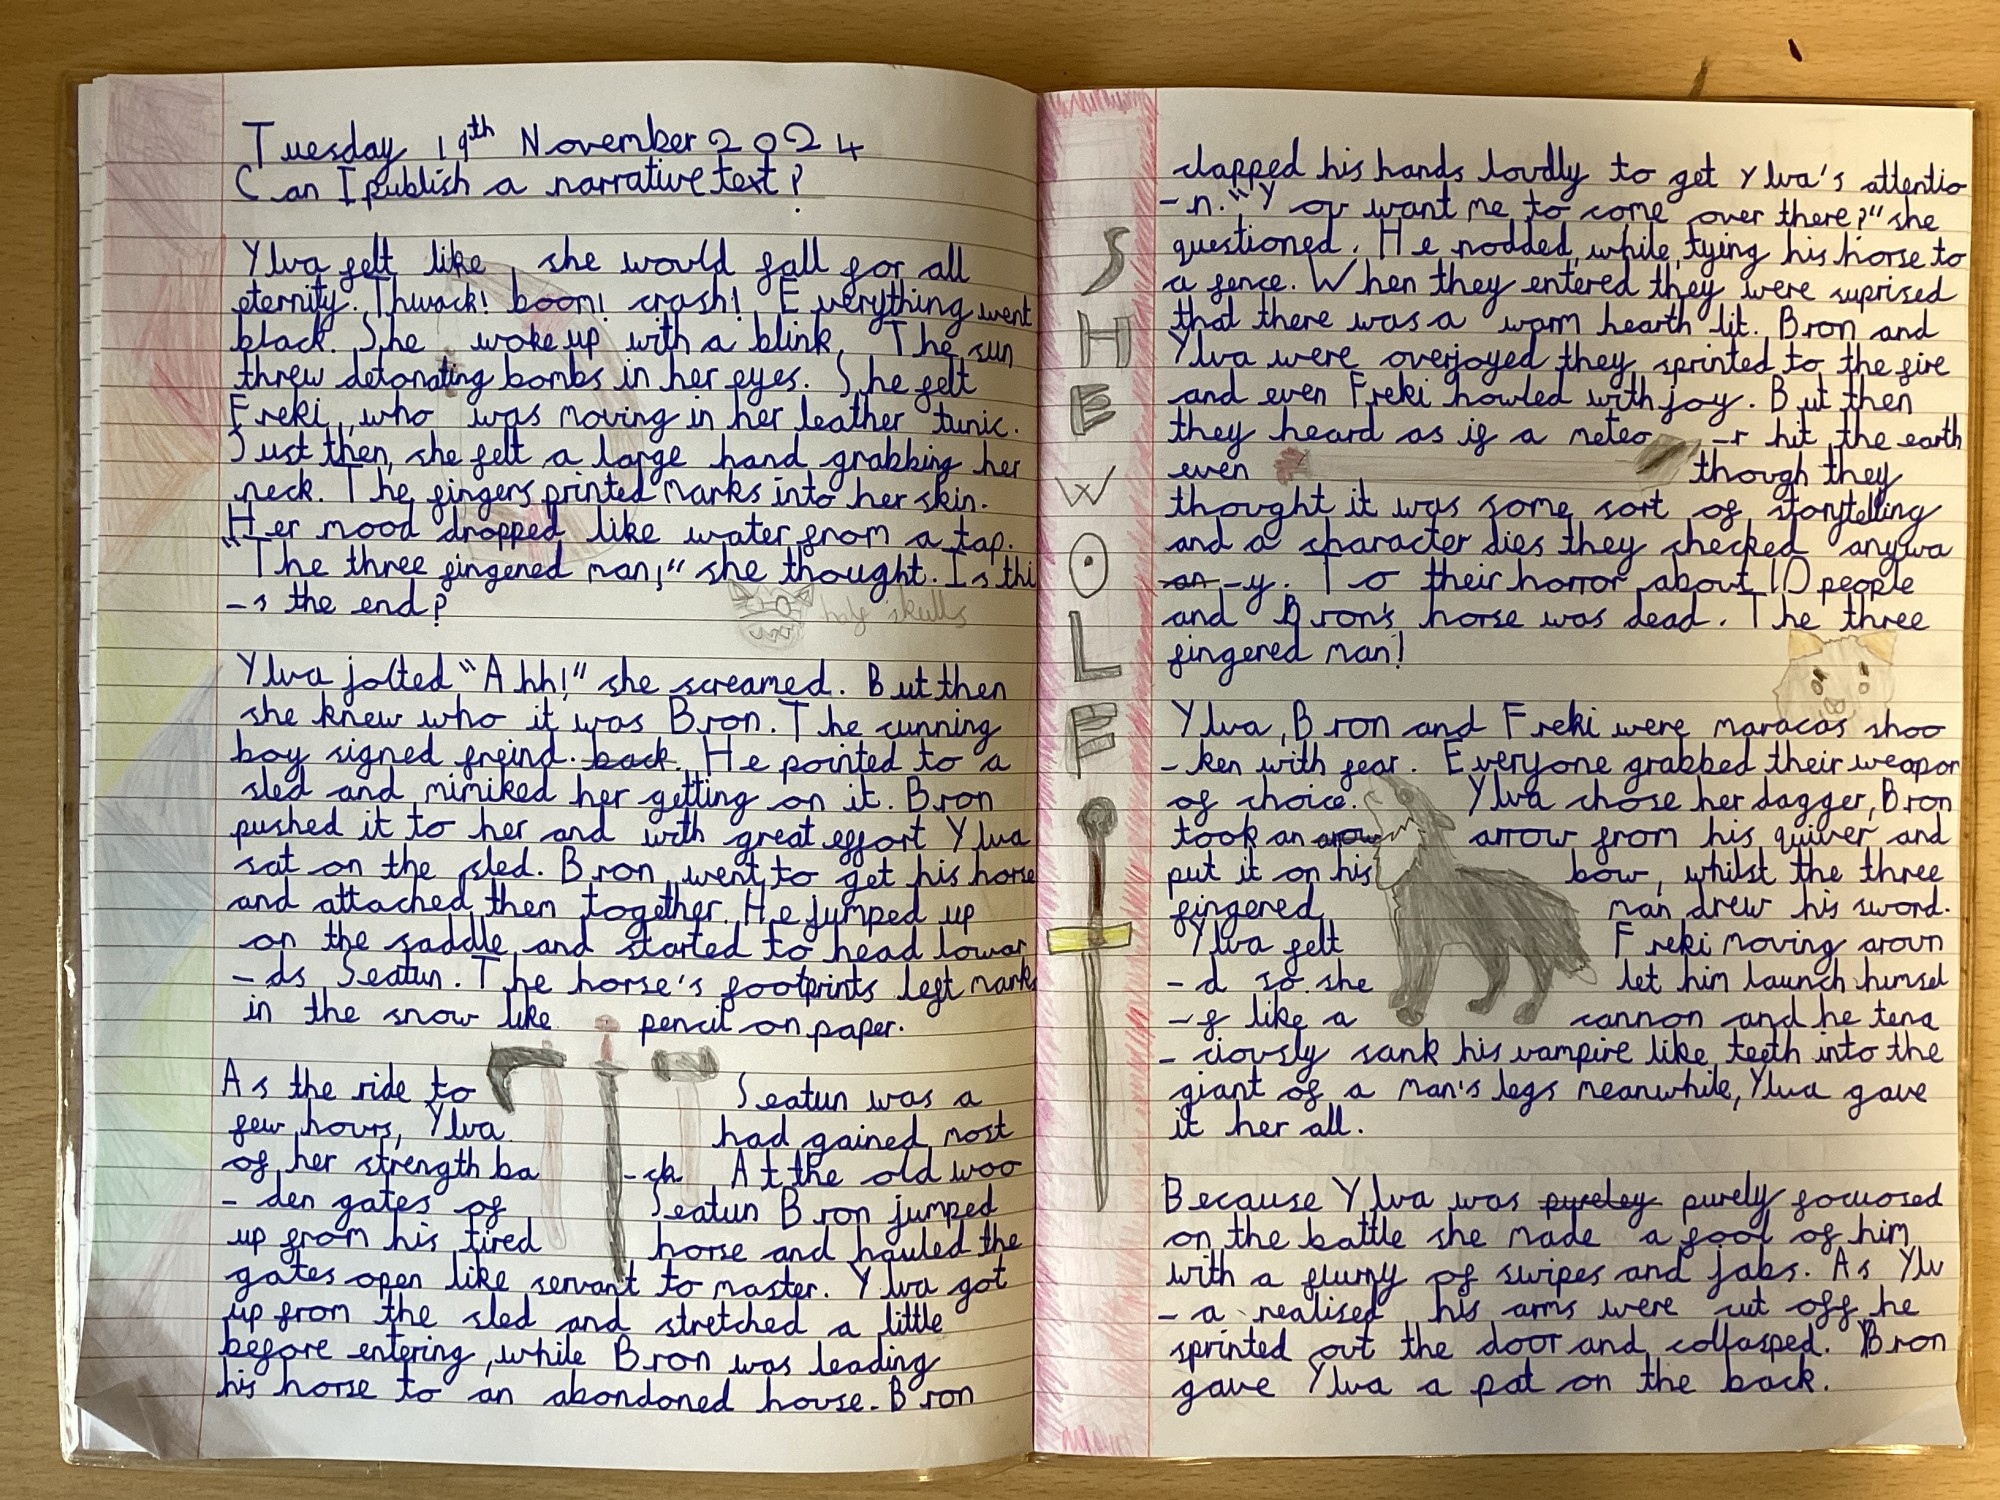 Tuesday 19th November 2024
Can I publish a narrative text?
Ylva felt like she would fall for all
eternity. Thwack! boom! crash! Everything went
black. She woke up with a blink. The sun
threw detonating bombs in her eyes. She felt
Freki, who was moving in her leather tunic.
Just then, she felt a large hand grabbing her
neck. The fingers printed marks into her skin.
Her mood dropped like water from a tap.
"The three fingered man!" she thought. Is thi
-s the end?
holy skulls
Ylva jolted "Ahh!" she screamed. But then
she knew who it was Bron. The cunning
boy signed freind. back. He pointed to a
sled and mimiked her getting on it. Bron
pushed it to her and with great effort Ylva
sat on the sled. Bron went to get his horse
and attached them together. He jumped up
on the saddle and started to head towar
-ds Seatun. The horse's footprints left marks
in the snow like pencil on paper.
As the ride to Seatun was a
few hours, Ylva had gained most
of her strength ba -ck. At the old woo
-den gates of Seatun Bron jumped
up from his tired horse and hauled the
gates open like servant to master. Ylva got
up from the sled and stretched a little
before entering, while Bron was leading
his horse to an abandoned house. Bron
SHEWOLE
clapped his hands loudly to get Ylva's attentio
-n. "You want me to come over there?" she
questioned. He nodded, while, tying his horse to
a fence. When they entered they were suprised
that there was a warm hearth lit. Bron and
Ylva were overjoyed they sprinted to the fire
and even Freki howled with joy. But then
they heard as if a meteo -r hit the earth
even though they
thought it was some sort of storytelling
and a character dies they checked anywa
an -y. To their horror about 10 people
and Bron's horse was dead. The three
fingered man!
Ylva, Bron and Freki were maracas shoo
-ken with fear. Everyone grabbed their weapon
of choice. Ylva chose her dagger, Bron
took an arrow arrow from his quiver and
put it on his bow, whilst the three
fingered man drew his sword.
Ylva felt Freki moving aroun
-d so she let him launch himsel
-f like a cannon and he tena
-ciously sank his vampire like teeth into the
giant of a man's legs meanwhile, Ylva gave
it her all.
Because Ylva was pureley purely focuosed
on the battle she made a fool of him
with a flurry of swipes and jabs. As Ylv
-a realised his arms were cut off he
sprinted out the door and collasped. Bron
gave Ylva a pat on the back.